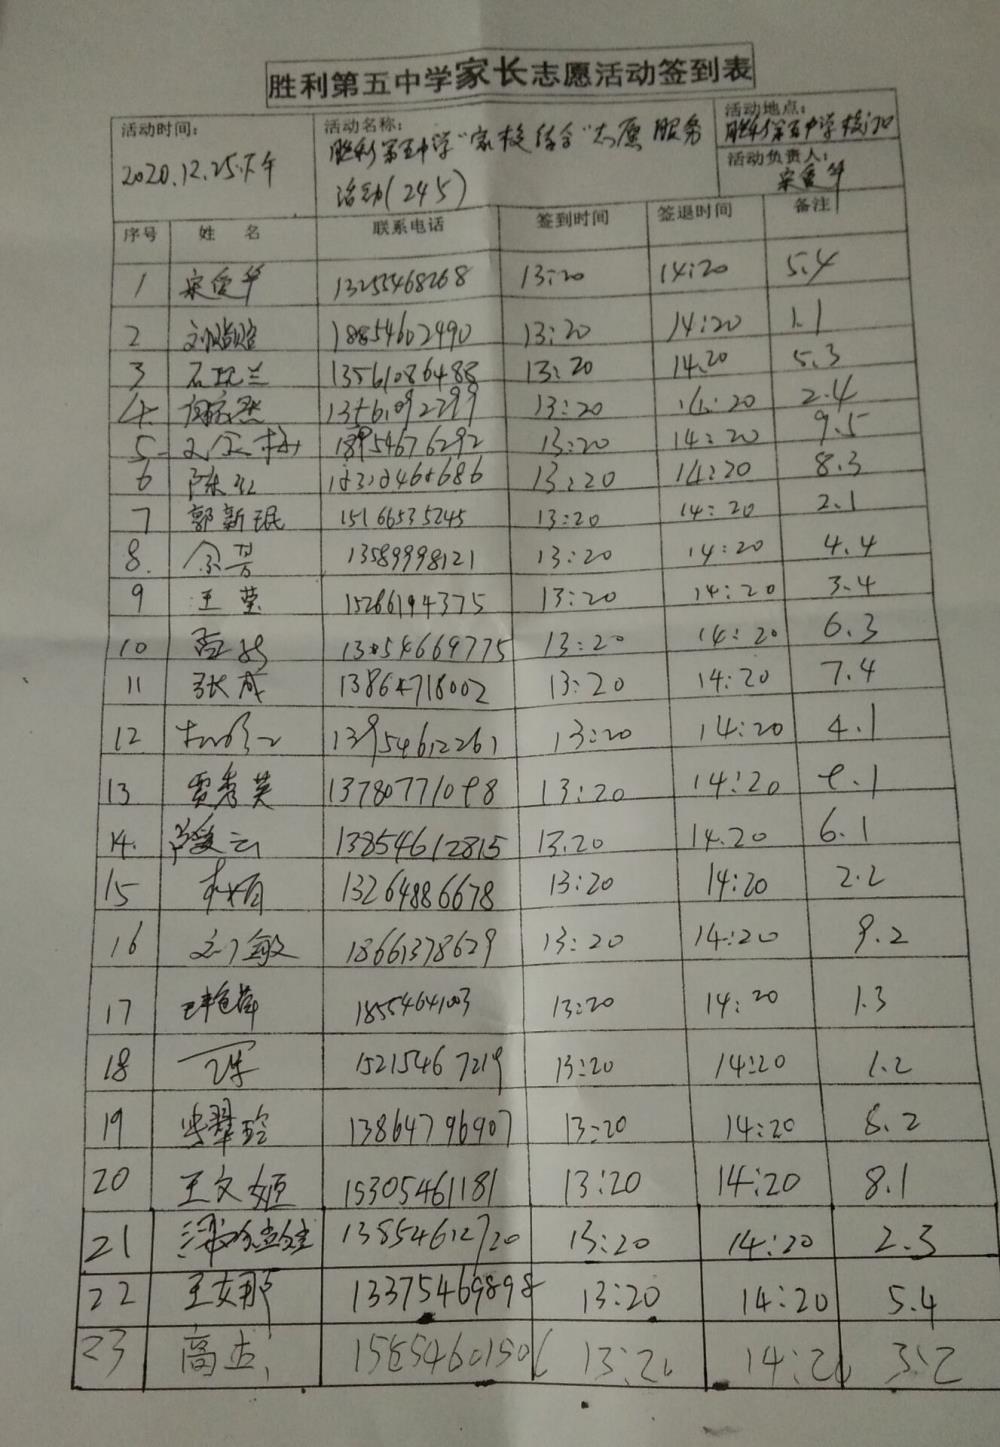 胜利第五中学家长志愿活动签到表
活动时间： 活动名称： 活动地点：
2020.12.25下午 胜利第五中学“家校结合”志愿服务 胜利第五中学校门口
活动(245) 活动负责人：
序号 姓 名 联系电话 签到时间 签退时间 备注
1 13255468268 13:20 14:20 5.4
2 18854602490 13:20 14:20 1.1
3 石现兰 13561086488 13:20 14.20 5.3
4. 13561092299 13:20 14:20 2.4
5 18954676292 13:20 14:20 9.5
6 陈红 13:20 14:20 8.3
7 郭新珉 15166535245 13:20 14:20 2.1
8. 13589998121 13:20 14:20 4.4
9 王莹 15286194375 13:20 14:20 3.4
10 13054669775 13:20 14:20 6.3
11 张成 13864718002 13:20 14:20 7.4
12 13954612261 13:20 14:20 4.1
13 贾秀英 13780771098 13:20 14:20 9.1
14. 13854612815 13.20 14.20 6.1
15 13264886678 13:20 14:20 2.2
16 刘敏 18661378629 13:20 14:20 9.2
17 18554641003 13:20 14:20 1.3
18 15215467219 13:20 14:20 1.2
19 13864796907 13:20 14:20 8.2
20 王文姬 15305461181 13:20 14:20 8.1
21 13854612720 13:20 14:20 2.3
22 王女那 13375469898 13:20 14:20 5.4
23 高杰 13:20 14:20 3.2